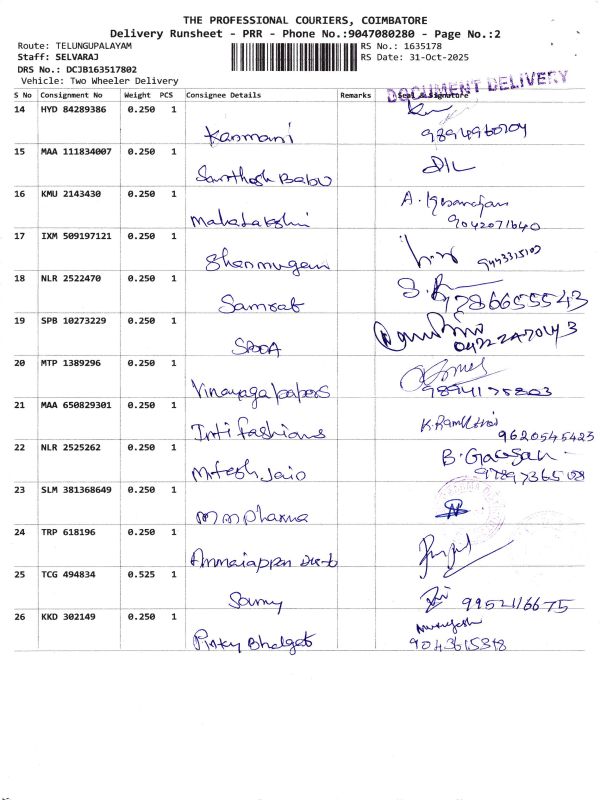 THE PROFESSIONAL COURIERS, COIMBATORE
Delivery Runsheet - PRR - Phone No.:9047080280 - Page No.:2
Route: TELUNGUPALAYAM RS No.: 1635178
Staff: SELVARAJ RS Date: 31-Oct-2025
DRS No.: DCJB163517802
Vehicle: Two Wheeler Delivery
DOCUMENT DELIVERY
S No Consignment No Weight PCS Consignee Details Remarks Seal & Signature
14 HYD 84289386 0.250 1
Kanmani
15 MAA 111834007 0.250 1
Santhosh Babu
16 KMU 2143430 0.250 1
Mahalakshmi 9042071640
17 IXM 509197121 0.250 1
Shanmugam 9443315107
18 NLR 2522470 0.250 1
Samrat 9786655543
19 SPB 10273229 0.250 1
SPDDA
20 MTP 1389296 0.250 1
Vinayaga papers 9894175803
21 MAA 650829301 0.250 1
Inti fashions 9620545423
22 NLR 2525262 0.250 1
Mitesh Jain
23 SLM 381368649 0.250 1
MM Pharma
24 TRP 618196 0.250 1
Ammaiappan
25 TCG 494834 0.525 1
Samy 9952116675
26 KKD 302149 0.250 1
Pinky Bhalgat